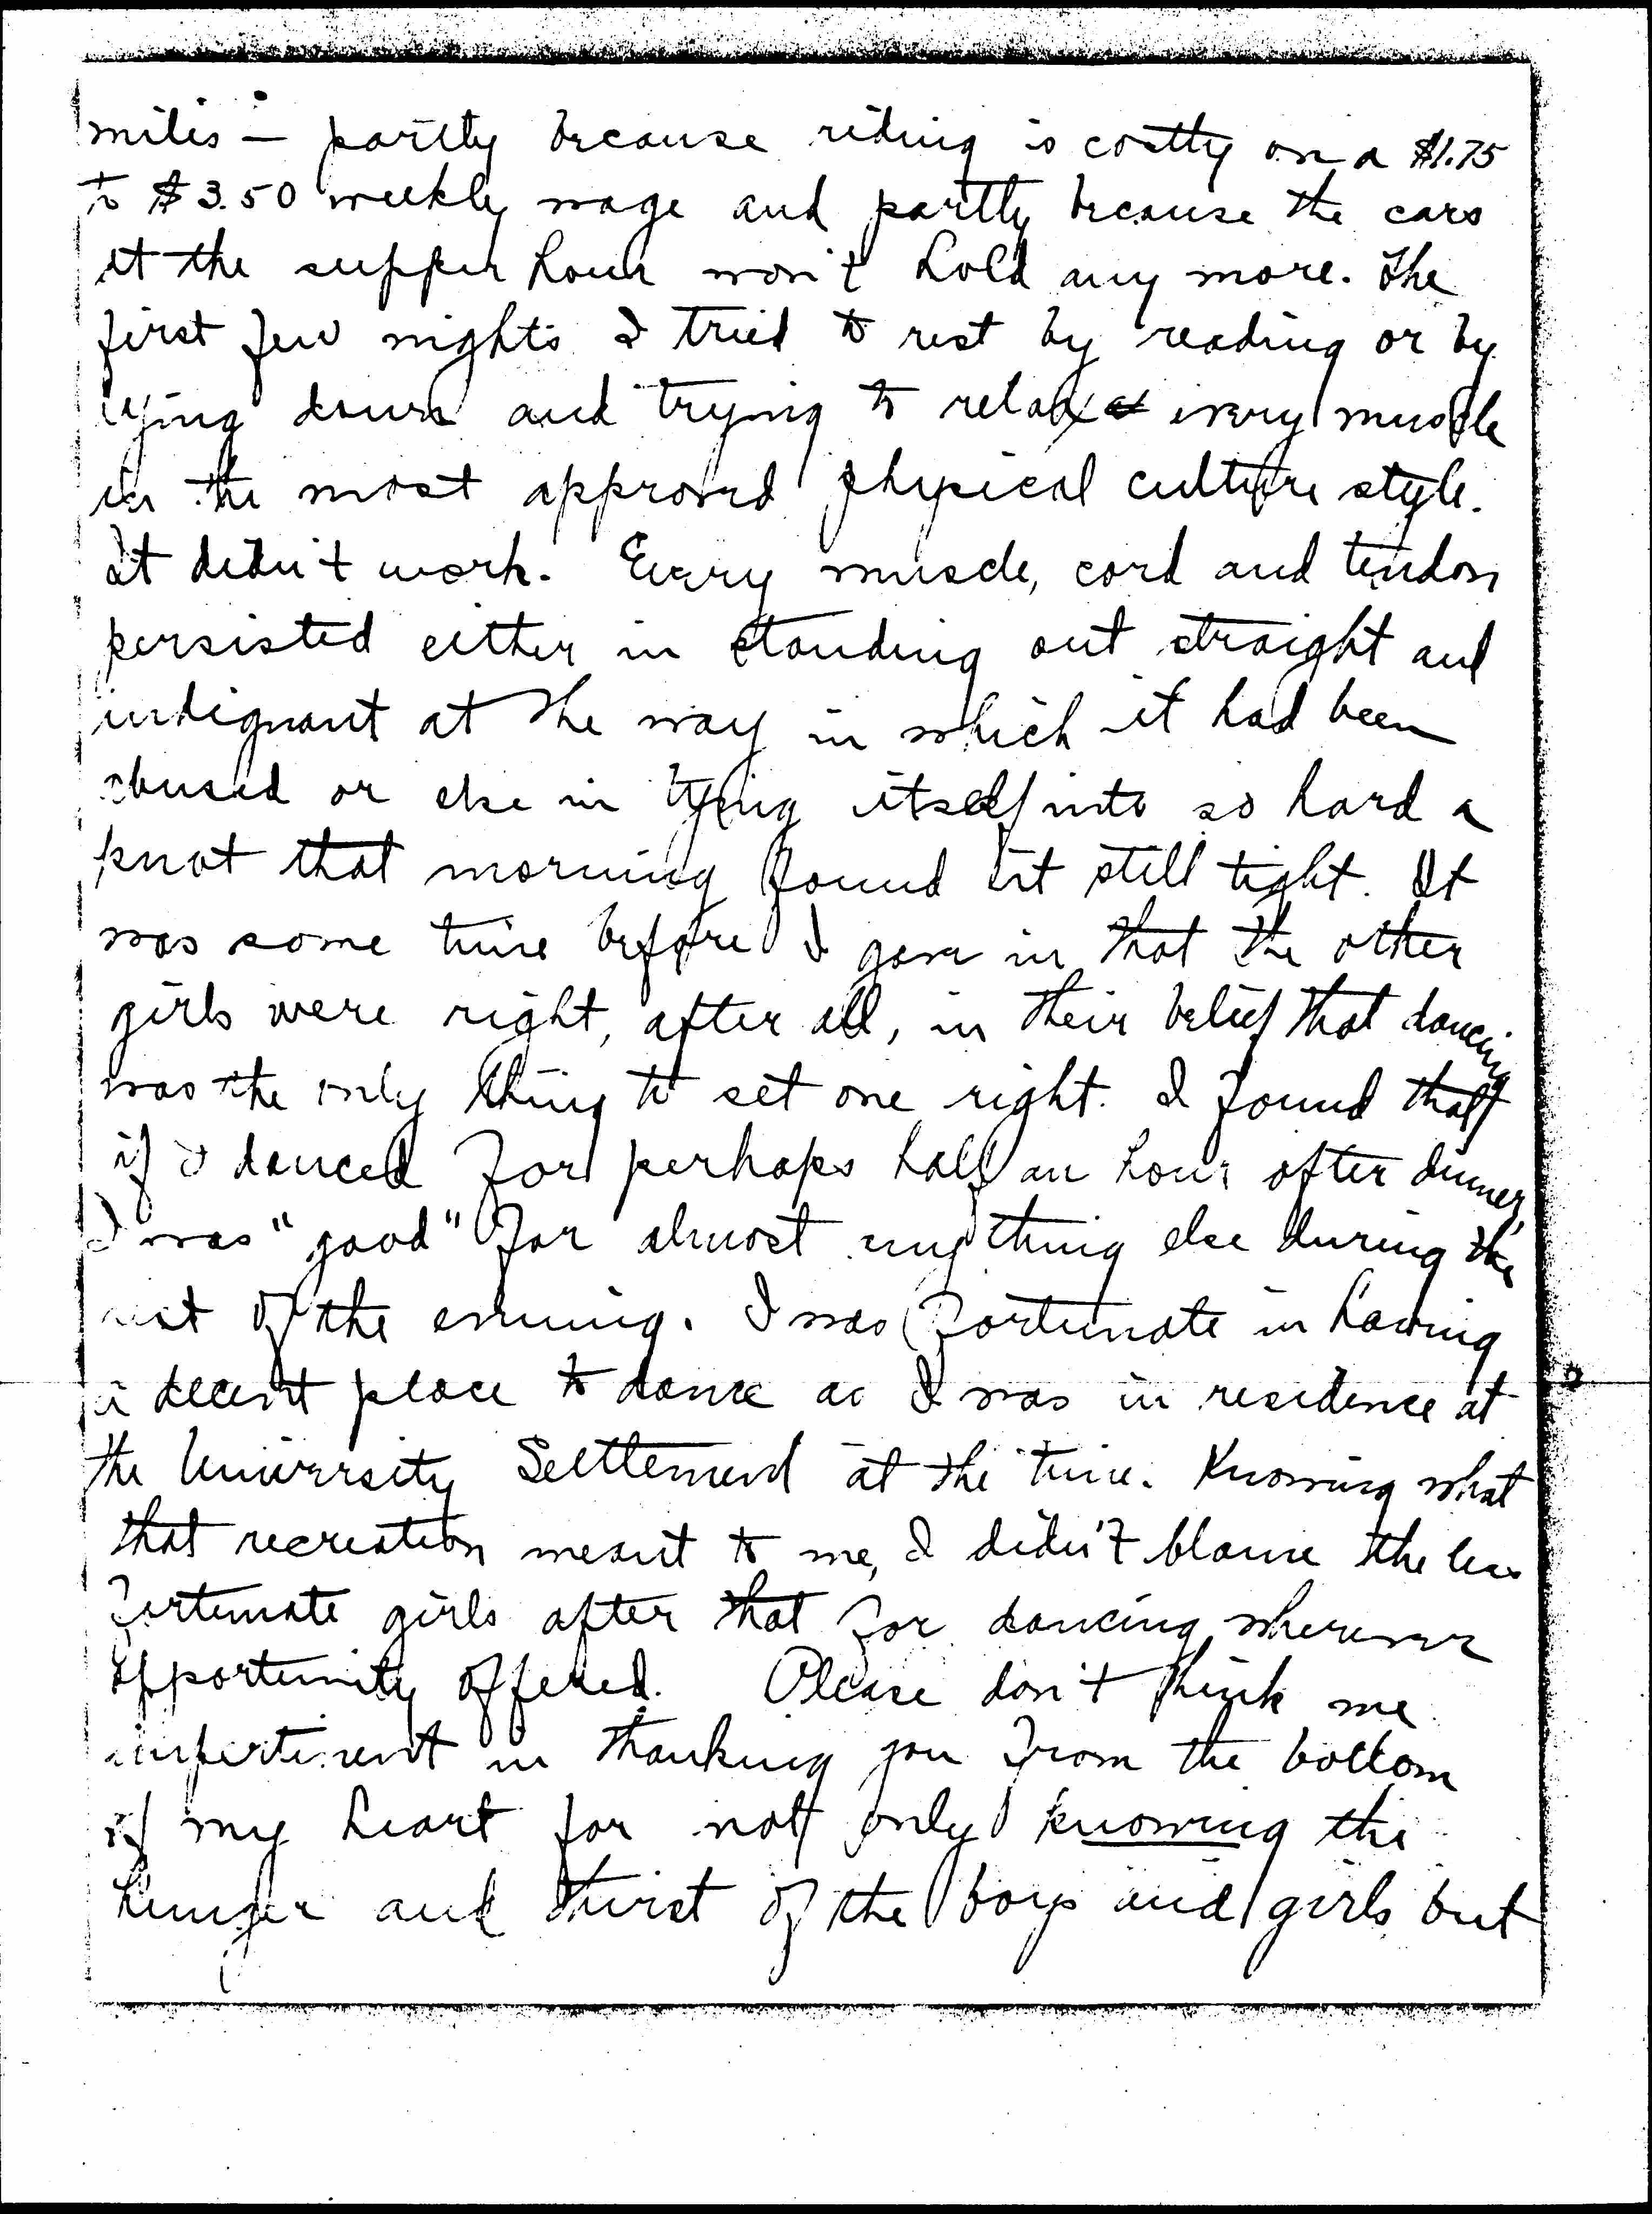 miles – partly because riding is costly on a $1.75
to $3.50 weekly wage and partly because the cars
at the supper hour won't hold any more. The
first few nights I tried to rest by reading or by
lying down and trying to relax every muscle
in the most approved physical culture style.
It didn't work. Every muscle, cord and tendon
persisted either in standing out straight and
indignant at the way in which it had been
abused or else in tying itself into so hard a
knot that morning found it still tight. It
was some time before I gave in that the other
girls were right, after all, in their belief that dancing
was the only thing to set one right. I found that
if I danced for perhaps half an hour after dinner,
I was "good" for almost anything else during the
rest of the evening. I was fortunate in having
a decent place to dance as I was in residence at
the University Settlement at the time. Knowing what
that recreation meant to me, I didn't blame the less
fortunate girls after that for dancing wherever
opportunity offered. Please don't think me
impertinent in thanking you from the bottom
of my heart for not only knowing the
hunger and thirst of the boys and girls but